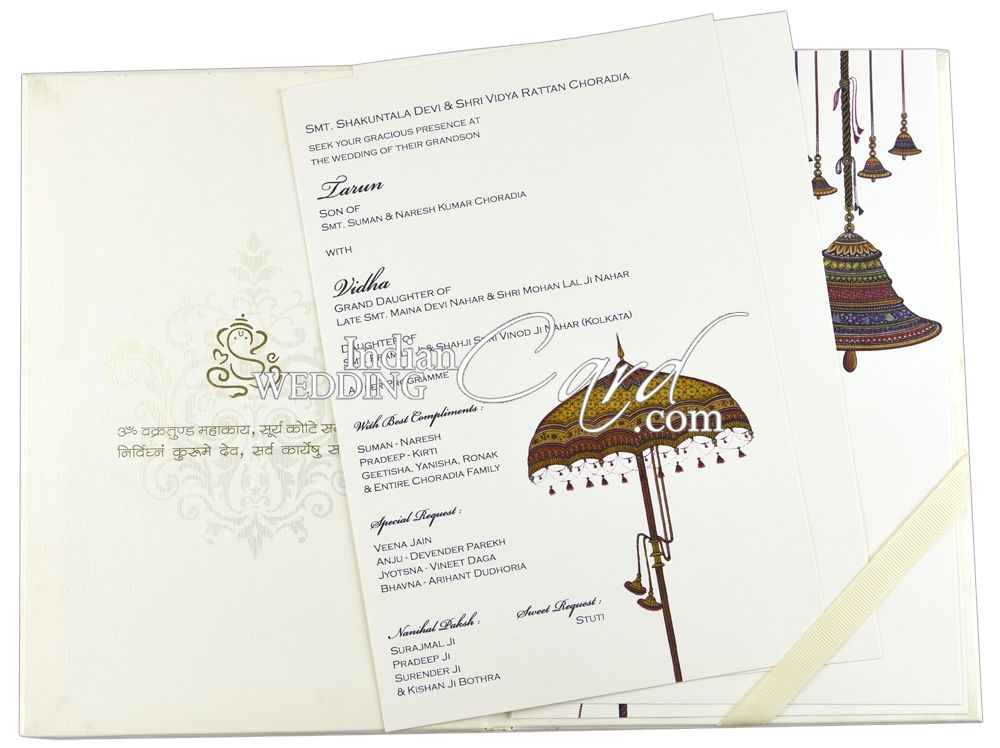 ॐ वक्रतुण्ड महाकाय, सूर्य कोटि
निर्विघ्नं कुरूमे देव, सर्व कार्येषु
SMT. SHAKUNTALA DEVI & SHRI VIDYA RATTAN CHORADIA
SEEK YOUR GRACIOUS PRESENCE AT
THE WEDDING OF THEIR GRANDSON
Tarun
SON OF
SMT. SUMAN & NARESH KUMAR CHORADIA
WITH
Vidha
GRAND DAUGHTER OF
LATE SMT. MAINA DEVI NAHAR & SHRI MOHAN LAL JI NAHAR
DAUGHTER OF
SMT. & SHAHJI SHRI VINOD JI NAHAR (KOLKATA)
PROGRAMME
Indian
WEDDING Card
.com
With Best Compliments :
SUMAN - NARESH
PRADEEP - KIRTI
GEETISHA, YANISHA, RONAK
& ENTIRE CHORADIA FAMILY
Special Request :
VEENA JAIN
ANJU - DEVENDER PAREKH
JYOTSNA - VINEET DAGA
BHAVNA - ARIHANT DUDHORIA
Nanihal Paksh :
SURAJMAL JI
PRADEEP JI
SURENDER JI
& KISHAN JI BOTHRA
Sweet Request :
STUTI